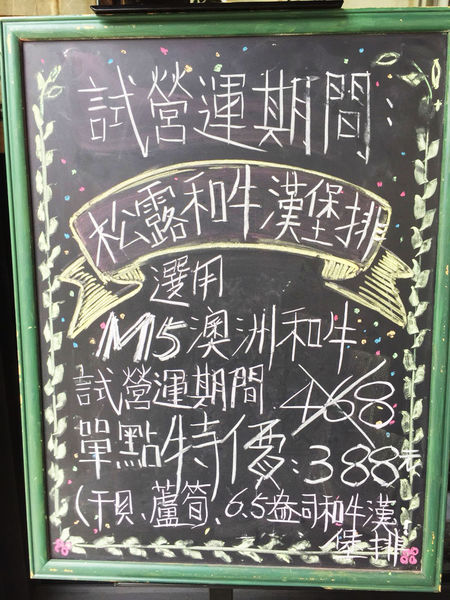 試營運期間:
松露和牛漢堡排
選用
M5澳洲和牛
試營運期間 468
單點特價:388元
(干貝、蘆筍、6.5盎司和牛漢
堡排